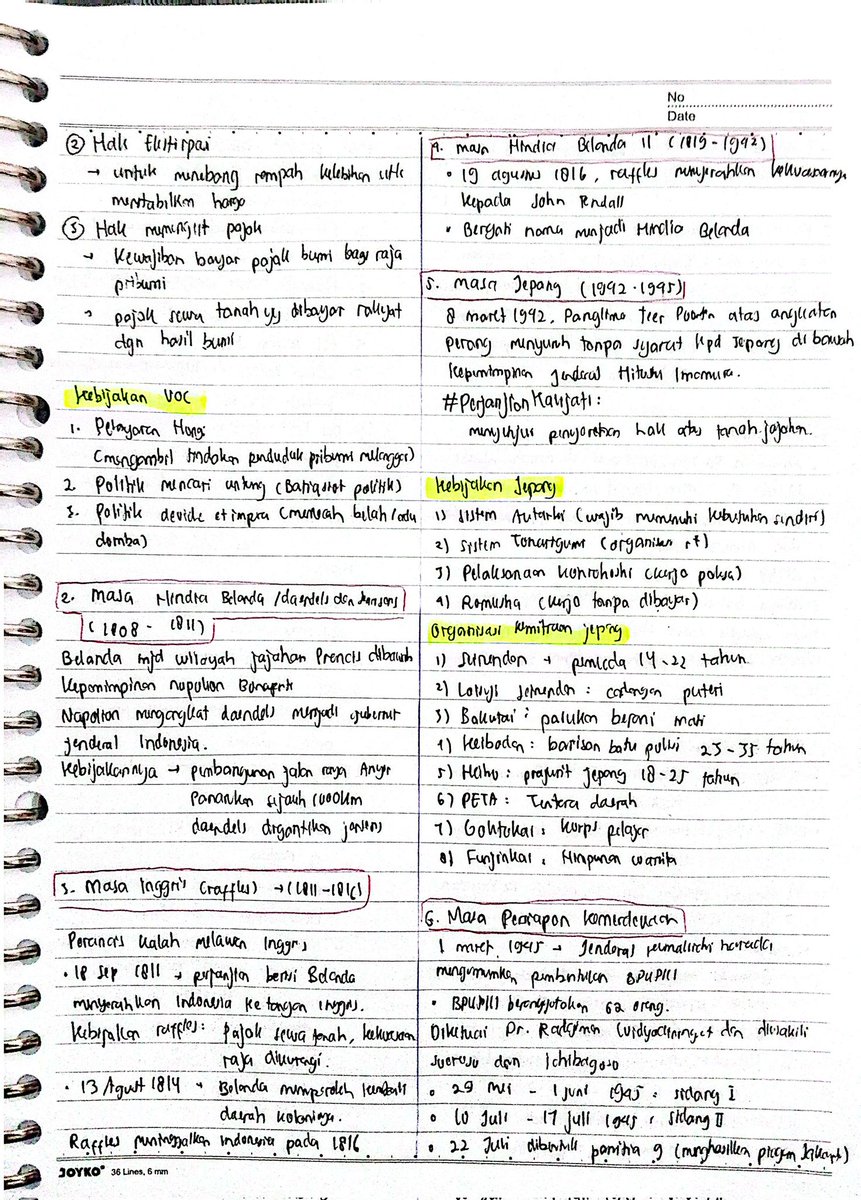 No
Date
② Hak Ekstirpasi
→ untuk menebang rempah kelebihan utk
menstabilkan harga
③ Hak memungut pajak
→ Kewajiban bayar pajak bumi bagi raja
pribumi
→ pajak sewa tanah yg dibayar rakyat
dgn hasil bumi
Kebijakan VOC
1. Pelayaran Hongi
(mengambil tindakan penduduk pribumi melanggar)
2. Politik mencari untung (Batig slot politik)
3. Politik devide et impera (memecah belah/adu
domba)
2. Masa Hindia Belanda /daendels dan Janssens
(1808 - 1811)
Belanda mjd wilayah jajahan Prancis dibawah
kepemimpinan napoleon Bonaparte
Napoleon mengangkat daendels menjadi gubernur
jenderal Indonesia.
Kebijakannya → pembangunan jalan raya Anyer
Panarukan sejauh 1000km
daendels digantikan jansens
3. Masa Inggris (raffles) → (1811-1816)
Perancis kalah melawan Inggris
• 18 Sep 1811 → perjanjian berisi Belanda
menyerahkan Indonesia ke tangan inggris.
Kebijakan raffles: pajak sewa tanah, kekuasaan
raja dikurangi.
• 13 Agust 1814 → Belanda memperoleh kembali
daerah koloninya.
Raffles meninggalkan indonesia pada 1816
JOYKO® 36 Lines, 6 mm
4. masa Hindia Belanda II (1819-1942)
• 19 agustus 1816, raffles menyerahkan kekuasaannya
kepada John Fendall
• Berganti nama menjadi Hindia Belanda
5. masa Jepang (1942-1945)
8 maret 1942, Panglima Ter Poorten atas angkatan
perang menyerah tanpa syarat kpd Jepang di bawah
kepemimpinan jenderal Hitoshi Imamura.
#Perjanjian Kalijati:
menyetujui penyerahan hak atas tanah jajahan.
Kebijakan Jepang
1) Sistem Autarki (wajib memenuhi kebutuhan sendiri)
2) Sistem Tonarigumi (organisasi rt)
3) Pelaksanaan Kinrohoshi (kerja paksa)
4) Romusha (kerja tanpa dibayar)
Organisasi kemitraan jepang
1) Seinendan → pemuda 14-22 tahun
2) seinendan : cadangan puteri
3) Bakutai : pasukan berani mati
4) Keibodan : barisan batu polisi 23-35 tahun
5) Heiho : prajurit jepang 18-25 tahun
6) PETA : Tentara daerah
7) Gakutokai : korps pelajar
8) Funjinkai : Himpunan wanita
6. Masa Persiapan Kemerdekaan
1 maret 1945 → Jenderal kumakichi harada
mengumumkan pembentukan BPUPKI
• BPUPKI beranggotakan 62 orang.
Diketuai Dr. Radjiman Widyodiningrat dan diwakili
suroso dan Ichibagase
• 29 mei - 1 juni 1945 : sidang I
• 10 Juli - 17 juli 1945 : sidang II
• 22 Juli dibentuk panitia 9 (menghasilkan piagam Jakarta)